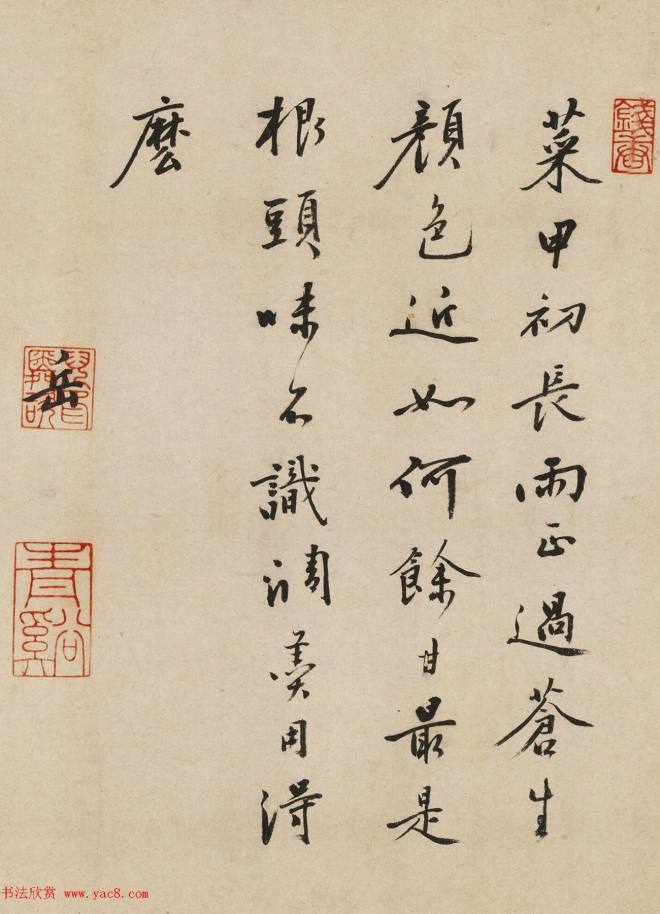 菜甲初長雨正過蒼生
顏色近如何餘甘最是
根頭味不識調羹用得
麼
岳
青谿
书法欣赏 www.yac8.com